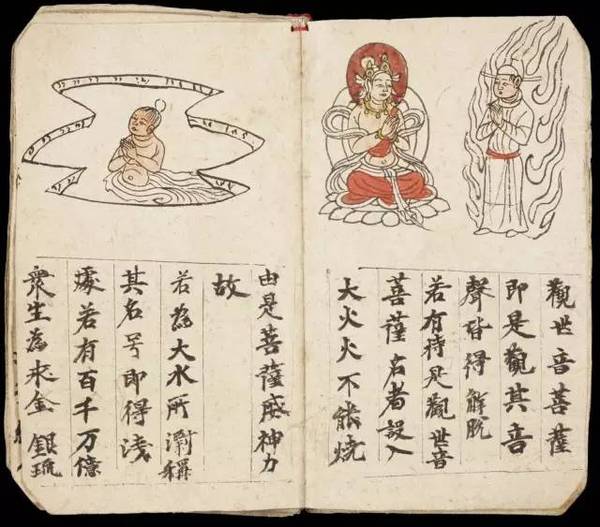 觀世音菩薩
即是觀其音
聲皆得解脱
若有持是觀世音
菩薩名者設入
大火火不能燒
由是菩薩威神力
故
若為大水所漂稱
其名号即得淺
處若有百千万億
衆生為求金銀琉